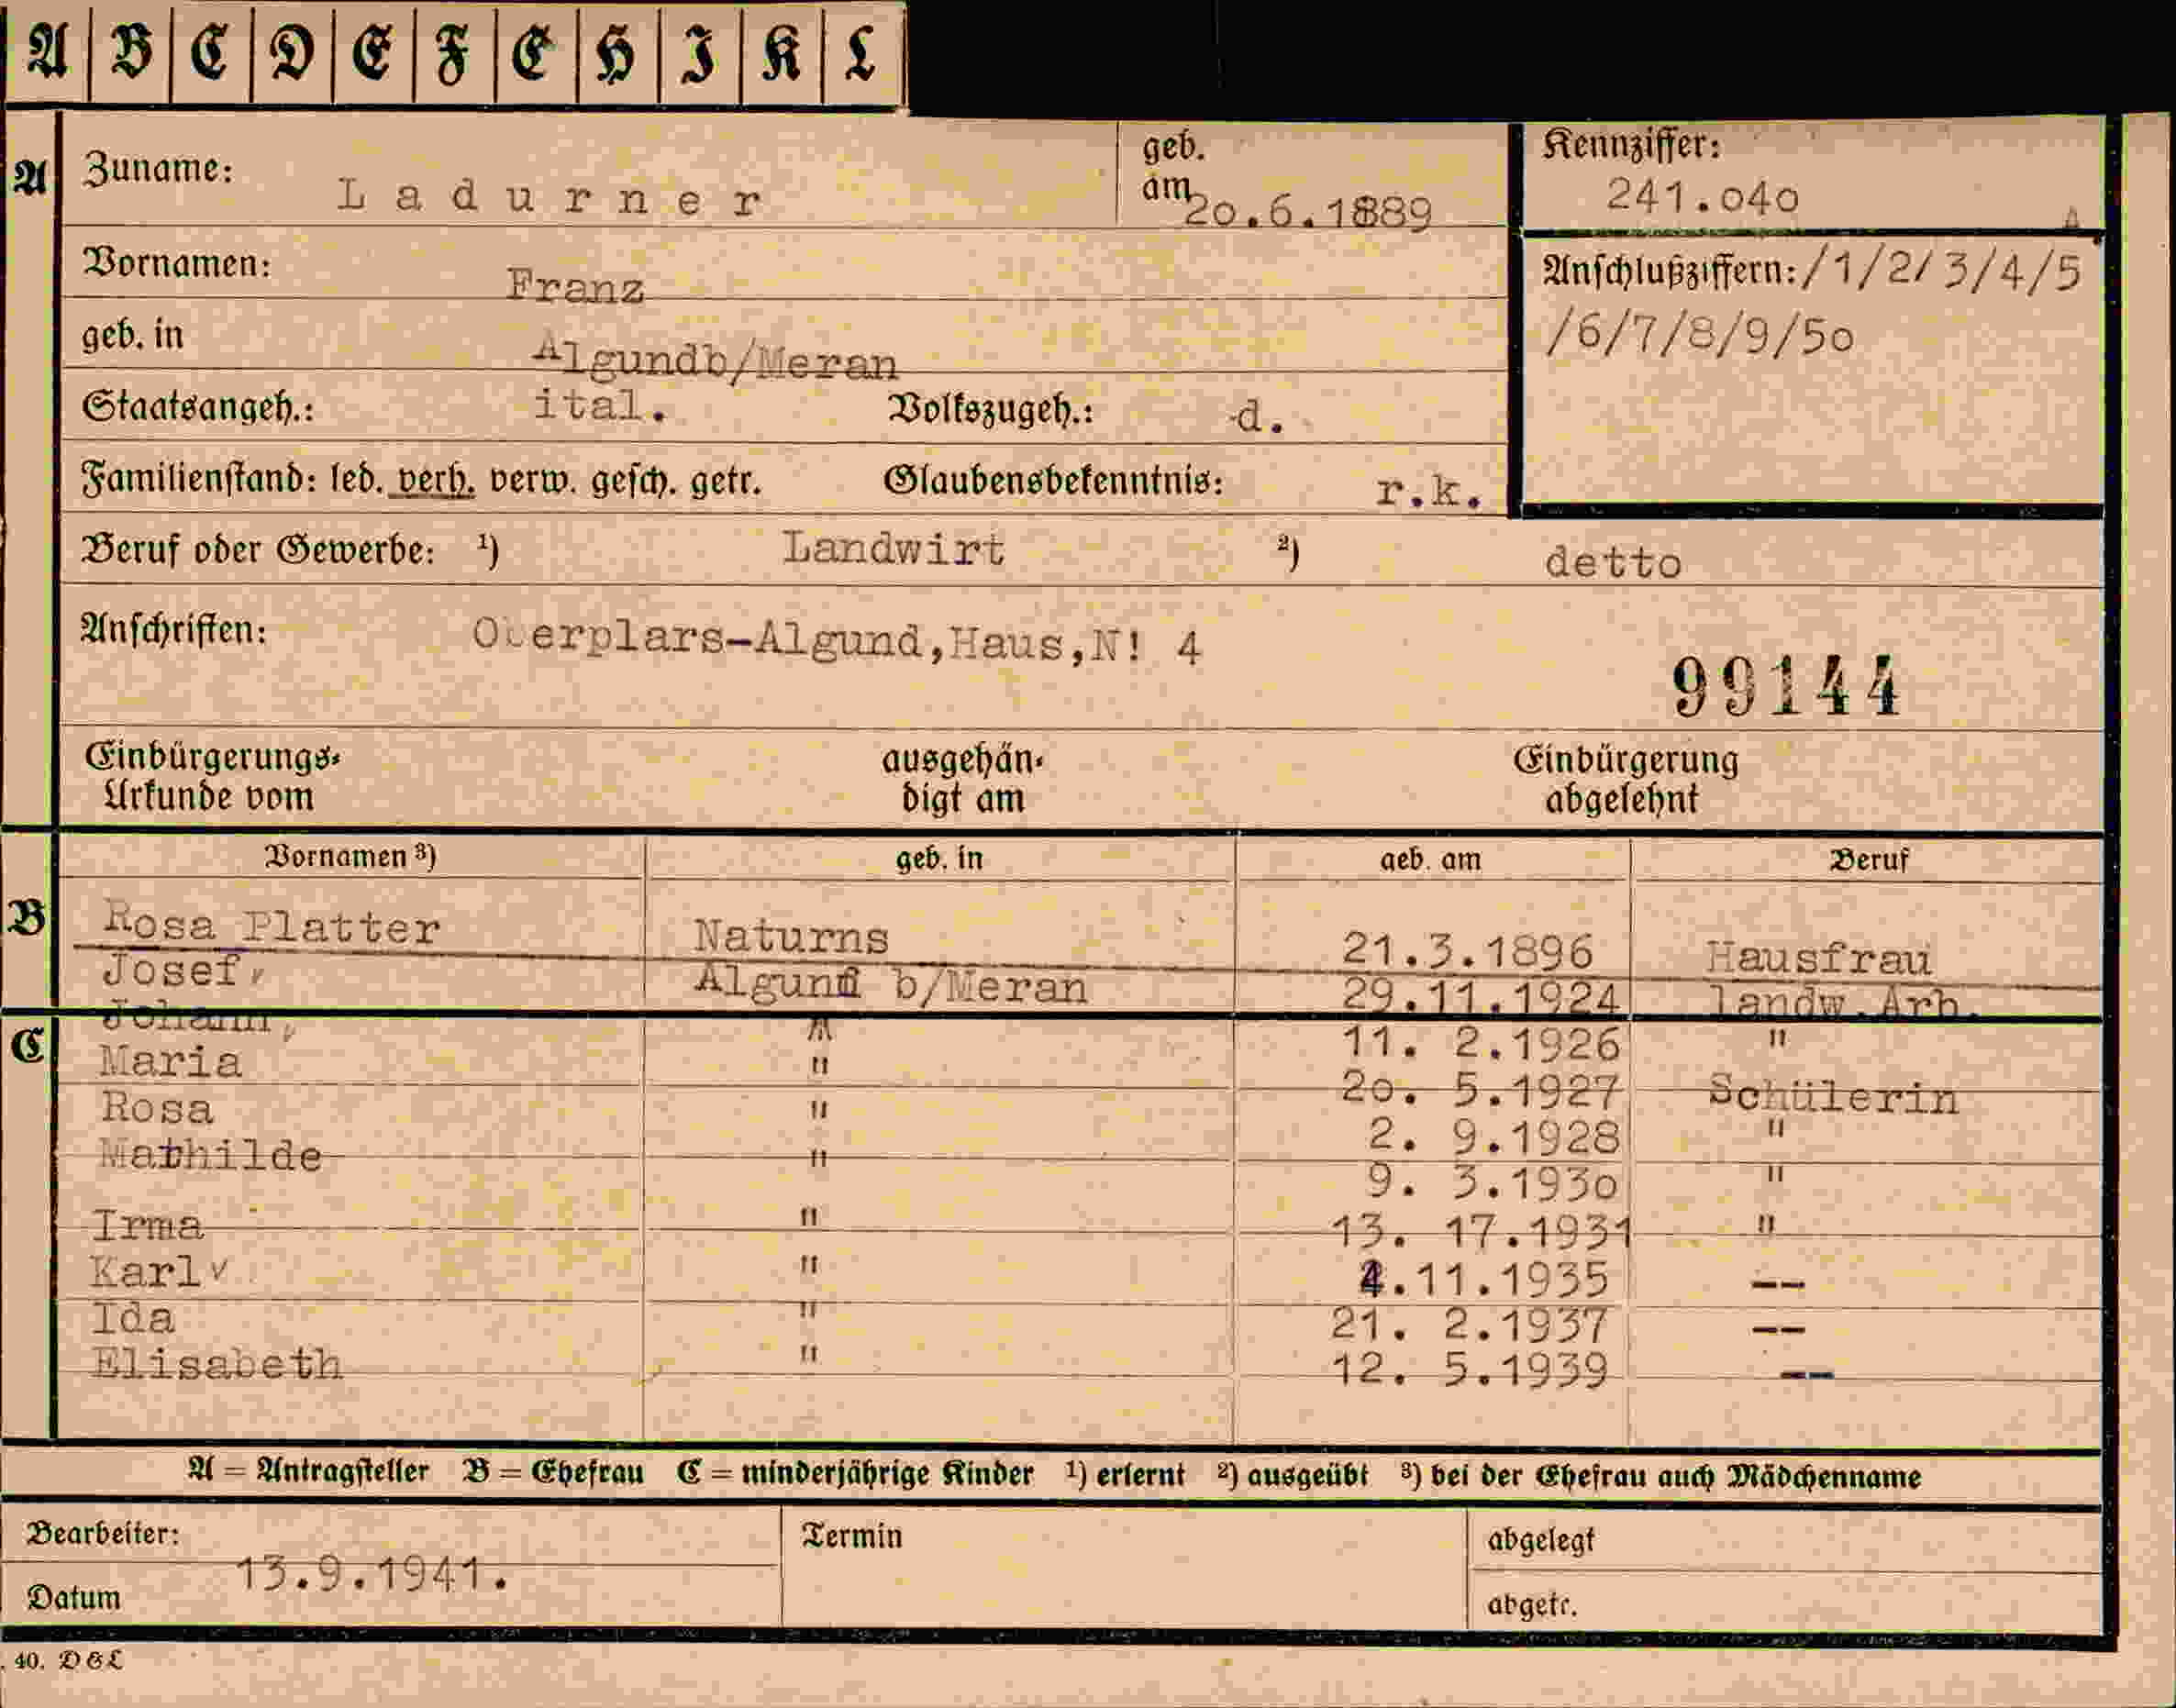 A B C D E F E H I K L
A Zuname: Ladurner geb. am 20.6.1889 Kennziffer: 241.040
Vornamen: Franz
geb. in Algundb/Meran
Anschlußziffern: /1/2/3/4/5
/6/7/8/9/50
Staatsangeh.: ital. Volkszugeh.: d.
Familienstand: led. verh. verw. gesch. getr. Glaubensbekenntnis: r.k.
Beruf oder Gewerbe: 1) Landwirt 2) detto
Anschriften: Oberplars-Algund,Haus,N! 4
99144
Einbürgerungs- Urkunde vom ausgehän- digt am Einbürgerung abgelehnt
Vornamen 3) geb. in geb. am Beruf
B Rosa Platter Naturns 21.3.1896 Hausfrau
Josef Algund b/Meran 29.11.1924 landw.Arb.
C Johann, " 11. 2.1926 "
Maria " 20. 5.1927 Schülerin
Rosa " 2. 9.1928 "
Mathilde " 9. 3.1930 "
Irma " 13. 17.1931 "
Karl " 4.11.1935 --
Ida " 21. 2.1937 --
Elisabeth " 12. 5.1939 --
A = Antragsteller B = Ehefrau C = minderjährige Kinder 1) erlernt 2) ausgeübt 3) bei der Ehefrau auch Mädchenname
Bearbeiter: Termin abgelegt
Datum 13.9.1941. abgetr.
. 40. D&L